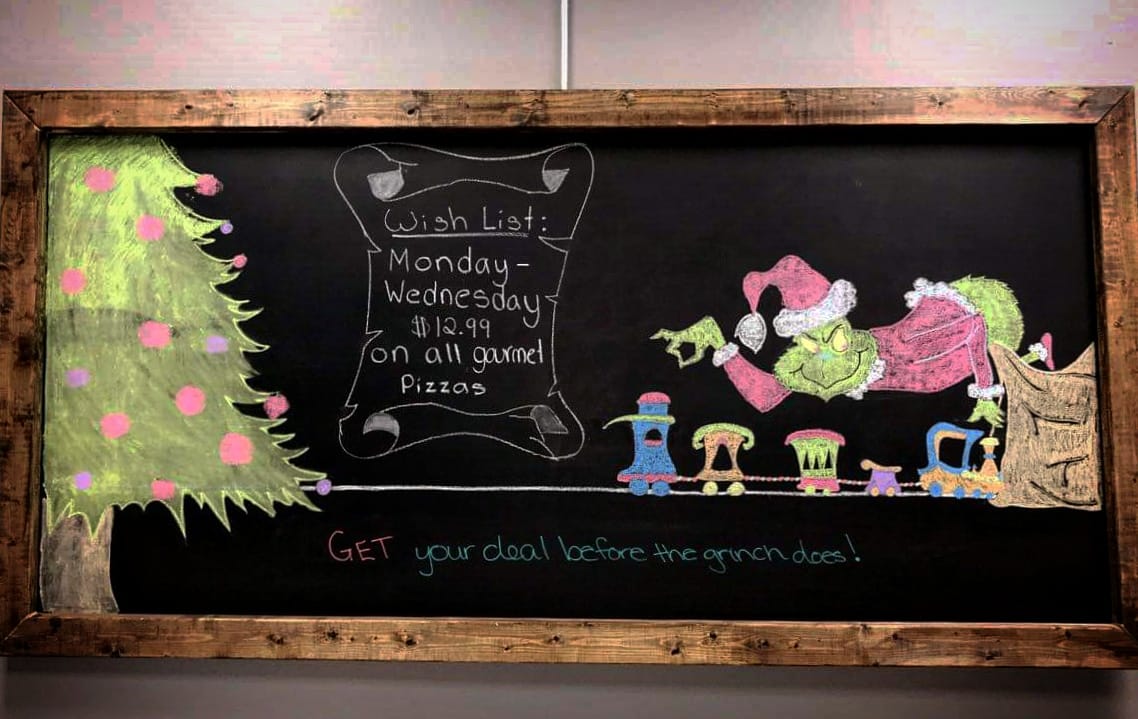 Wish List:
Monday-
Wednesday
$12.99
on all gourmet
Pizzas
GET your deal before the grinch does!